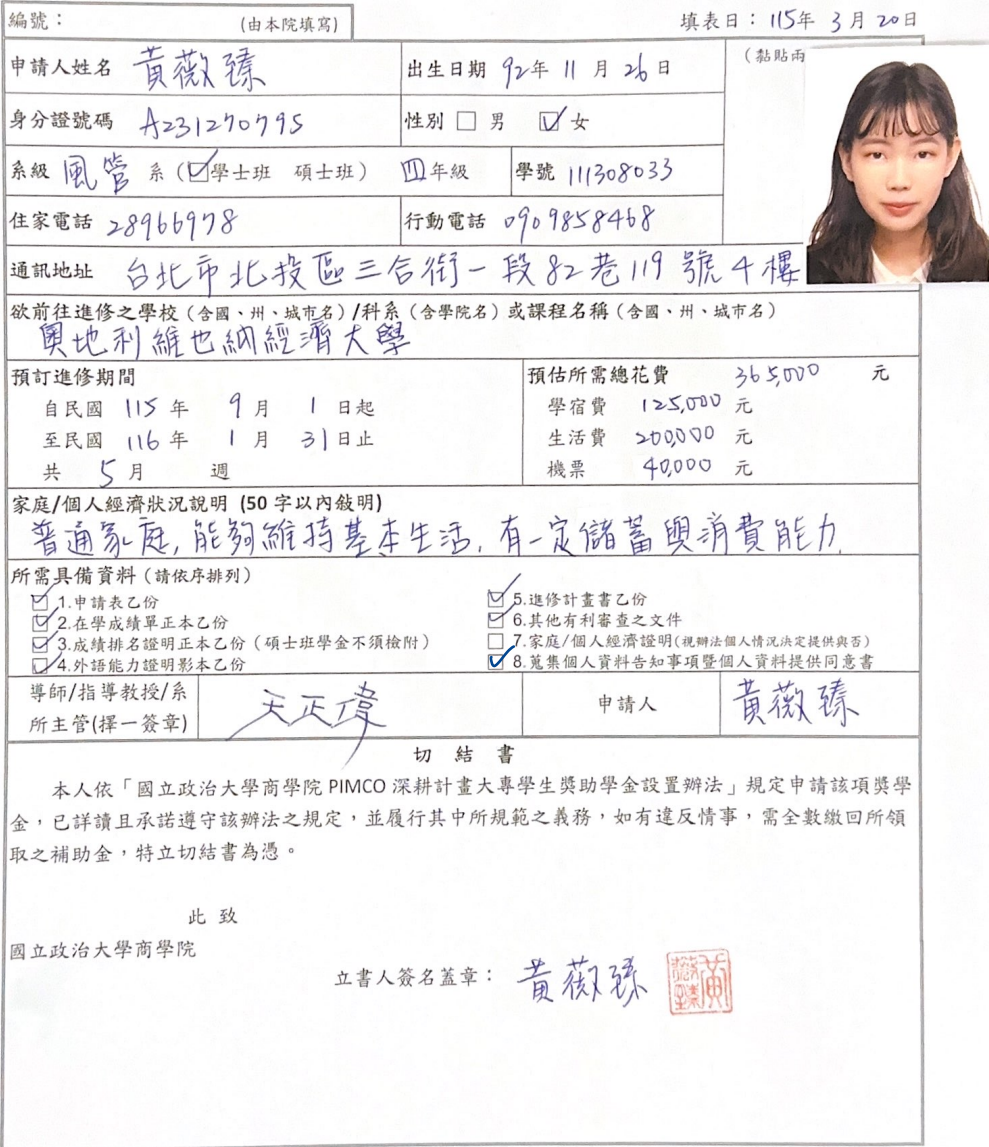 編號：
(由本院填寫)
填表日：115年 3月 20日
申請人姓名 黃薇臻
出生日期 92年 11月 26日
(黏貼兩
身分證號碼 A231270795
性別 □ 男 ☑ 女
系級 風管 系 (☑學士班 碩士班) 四年級
學號 111308033
住家電話 28966978
行動電話 0909858468
通訊地址 台北市北投區三合街一段82巷119號4樓
欲前往進修之學校(含國、州、城市名)/科系(含學院名)或課程名稱(含國、州、城市名)
奧地利維也納經濟大學
預訂進修期間
自民國 115 年 9 月 1 日起
至民國 116 年 1 月 31 日止
共 5 月 週
預估所需總花費 365,000 元
學宿費 125,000 元
生活費 200,000 元
機票 40,000 元
家庭/個人經濟狀況說明 (50 字以內敍明)
普通家庭,能夠維持基本生活,有一定儲蓄與消費能力.
所需具備資料(請依序排列)
☑ 1.申請表乙份
☑ 2.在學成績單正本乙份
☑ 3.成績排名證明正本乙份(碩士班學金不須檢附)
☑ 4.外語能力證明影本乙份
☑ 5.進修計畫書乙份
☑ 6.其他有利審查之文件
□ 7.家庭/個人經濟證明(視辦法個人情況決定提供與否)
☑ 8.蒐集個人資料告知事項暨個人資料提供同意書
導師/指導教授/系
所主管(擇一簽章)
申請人 黃薇臻
切 結 書
本人依「國立政治大學商學院 PIMCO 深耕計畫大專學生獎助學金設置辦法」規定申請該項獎學
金，已詳讀且承諾遵守該辦法之規定，並履行其中所規範之義務，如有違反情事，需全數繳回所領
取之補助金，特立切結書為憑。
此 致
國立政治大學商學院
立書人簽名蓋章： 黃薇臻
黃薇臻